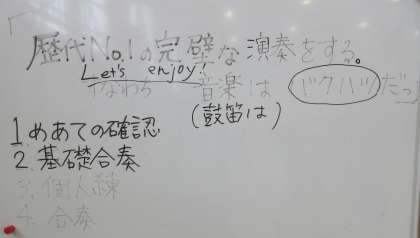 歴代No.1の完璧な演奏をする。
Let's enjoy!
すなわち 音楽は バクハツだっ
(鼓笛は)
1.めあての確認
2.基礎合奏
3.個人練
4.合奏